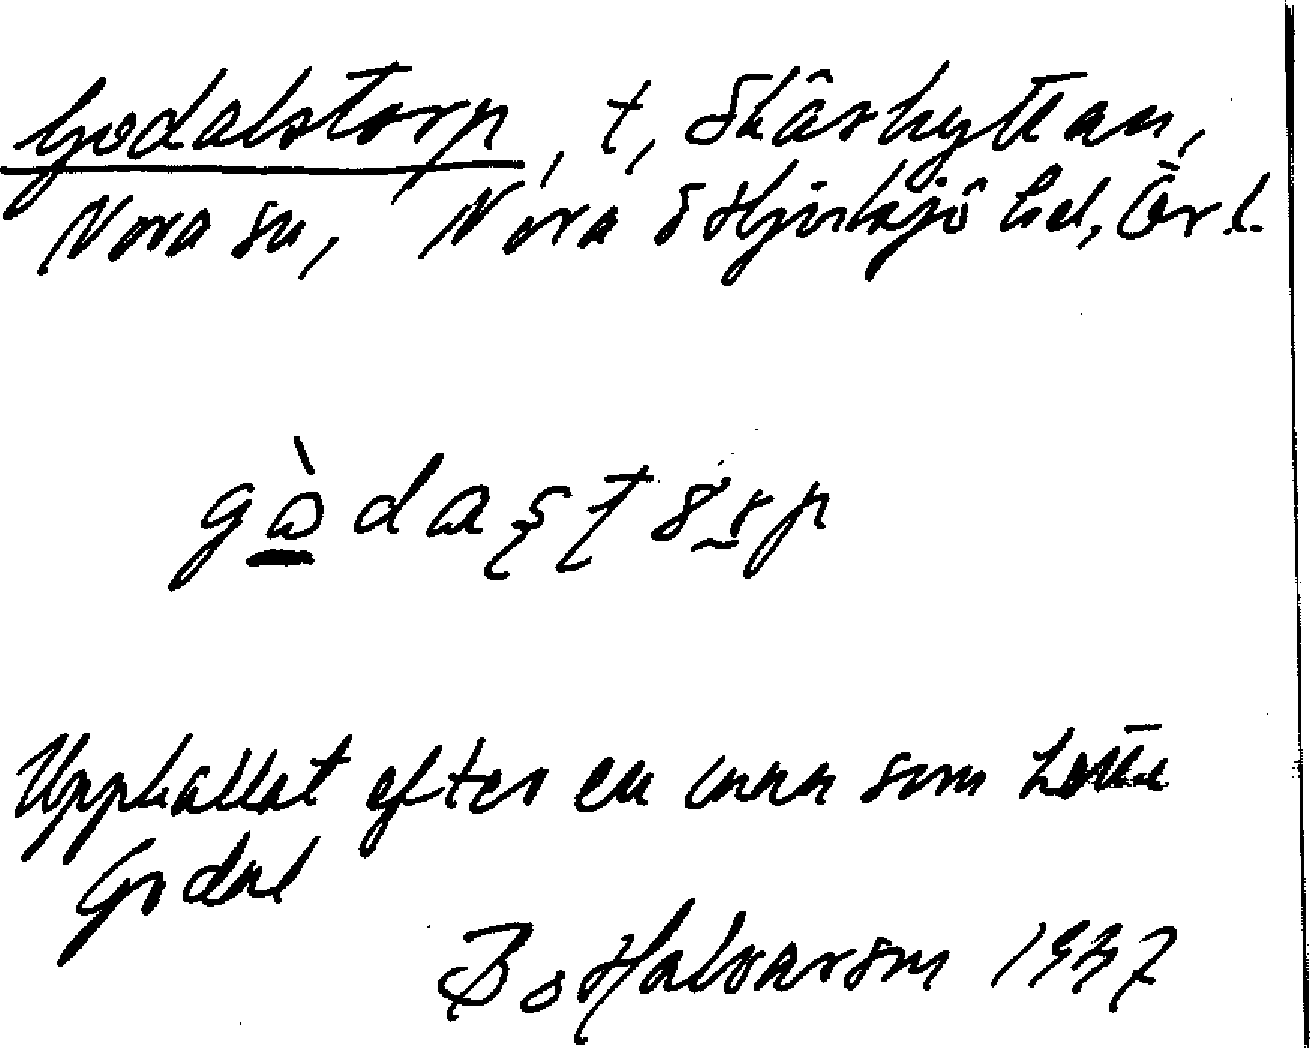 Godalstorp, t, Skärhyttan,
Nora sn, Nora o Hjulsjö hd, Ör l.
Uppkallat efter en man som hette
Godal
Bo Halvarson 1937